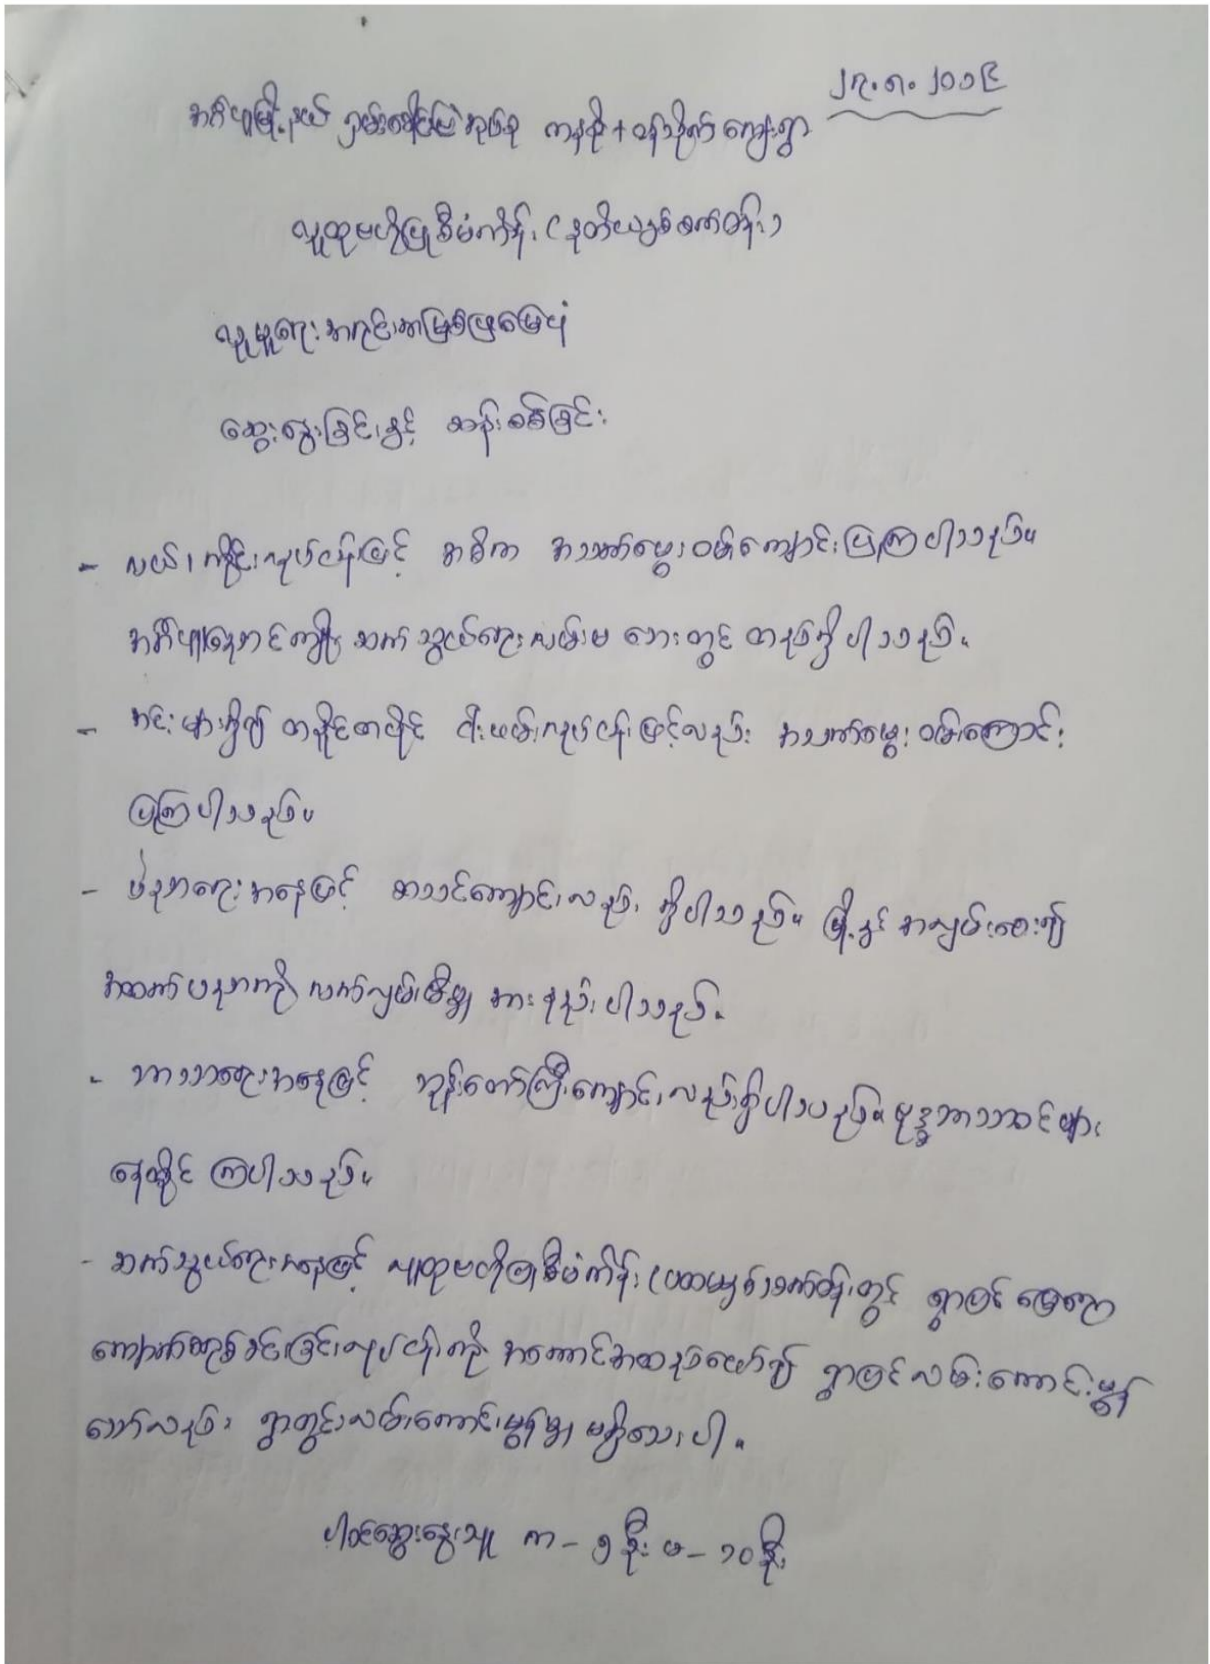 ၂၇.၈.၂၀၁၉
အင်္ဂပူမြို့နယ် အုပ်စု ကျေးရွာ
လူထုဗဟိုပြုစီမံကိန်း (ဒုတိယနှစ်စက်ဝန်း)
လူမှုရေးအရင်းအမြစ်ပြမြေပုံ
ဆွေးနွေးခြင်းနှင့် ဆန်းစစ်ခြင်း
- လယ်၊ ကိုင်းလုပ်ငန်းဖြင့် အဓိက အသက်မွေးဝမ်းကျောင်းပြုကြပါသည်။
ဆက်သွယ်ရေးလမ်းမ ဘေးတွင် တည်ရှိပါသည်။
- အင်းများရှိ၍ တနိုင်တပိုင် ငါးဖမ်းလုပ်ငန်းဖြင့်လည်း အသက်မွေးဝမ်းကြောင်း
ပြုကြပါသည်။
- ပံညာရေးအနေဖြင့် စာသင်ကျောင်းလည်း ရှိပါသည်။ မြို့နှင့် အလှမ်းဝေး၍
အထက်ပညာကို လက်လှမ်းမီမှု အားနည်းပါသည်။
- ဘာသာရေးအနေဖြင့် ဘုန်းတော်ကြီးကျောင်းလည်းရှိပါသည်။ ဗုဒ္ဓဘာသာဝင်များ
နေထိုင်ကြပါသည်။
- ဆက်သွယ်ရေးအနေဖြင့် လူထုဗဟိုပြုစီမံကိန်း (ပထမနှစ်)စက်ဝန်းတွင် ရွာပြင် မြေသား
ကျောက်ချောခင်းခြင်းလုပ်ငန်းကို အကောင်အထည်ဖော်၍ ရွာပြင်လမ်းကောင်းမွန်
သော်လည်း ရွာတွင်းလမ်းကောင်းမွန်မှု မရှိသေးပါ။
ပါဝင်ဆွေးနွေးသူ ကျ - ၅ ဦး မ - ၁၀ ဦး